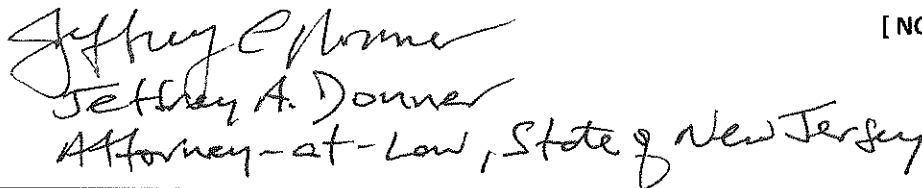 Jeffrey A. Donner [NO
Jeffrey A. Donner
Attorney-at-Law, State of New Jersey